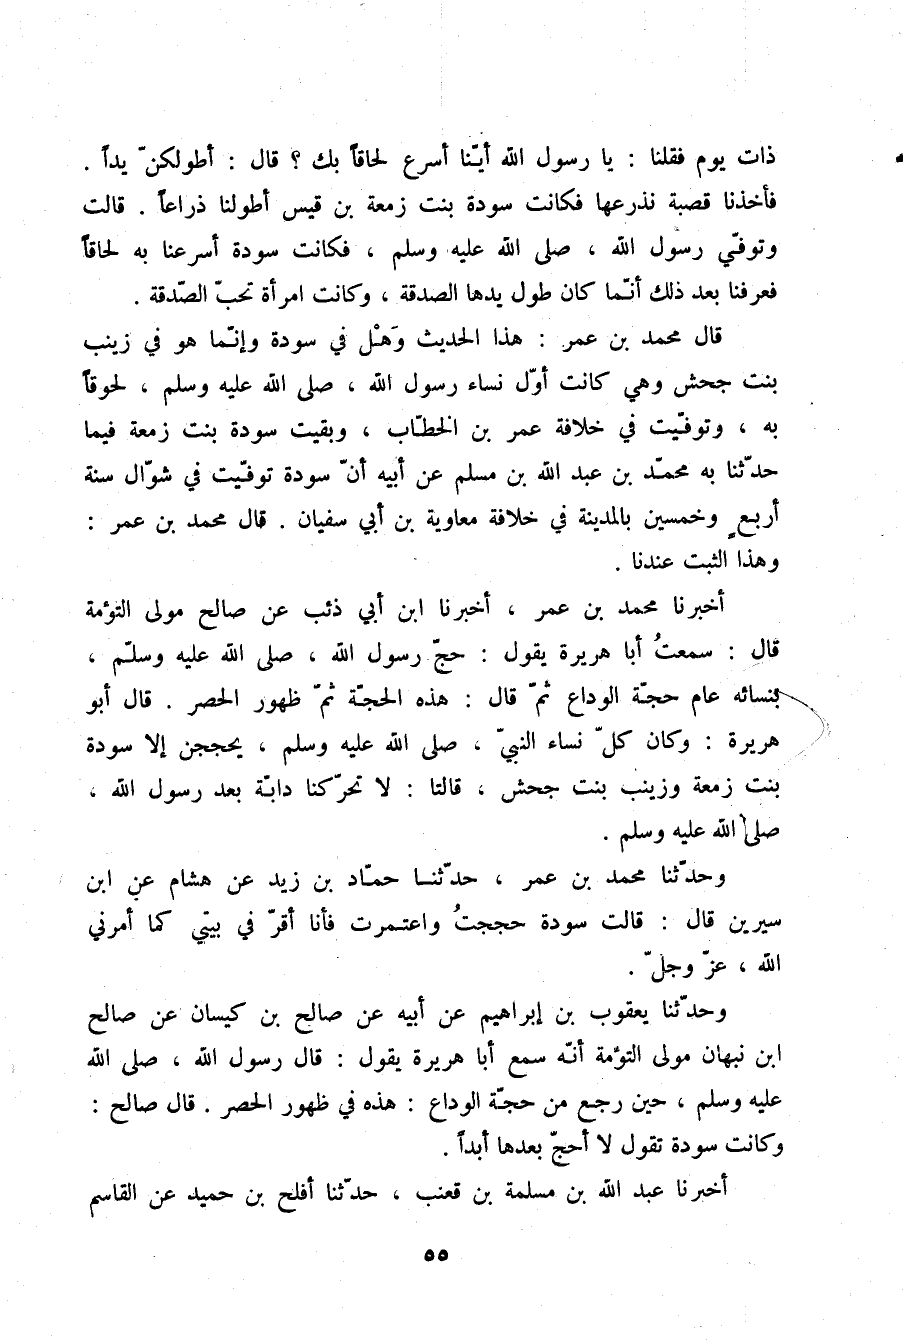 ذات يوم فقلنا : يا رسول الله أيّنا أسرع لحاقاً بك ؟ قال : أطولكنّ يداً .
فأخذنا قصبة نذرعها فكانت سودة بنت زمعة بن قيس أطولنا ذراعاً . قالت
وتوفّي رسول الله ، صلى الله عليه وسلم ، فكانت سودة أسرعنا به لحاقاً
فعرفنا بعد ذلك أنّما كان طول يدها الصدقة ، وكانت امرأة تحبّ الصّدقة .
قال محمد بن عمر : هذا الحديث وَهْل في سودة وإنّما هو في زينب
بنت جحش وهي كانت أوّل نساء رسول الله ، صلى الله عليه وسلم ، لحوقاً
به ، وتوفّيت في خلافة عمر بن الخطّاب ، وبقيت سودة بنت زمعة فيما
حدّثنا به محمّد بن عبد الله بن مسلم عن أبيه أنّ سودة توفّيت في شوّال سنة
أربعٍ وخمسين بالمدينة في خلافة معاوية بن أبي سفيان . قال محمد بن عمر :
وهذا الثبت عندنا .
أخبرنا محمد بن عمر ، أخبرنا ابن أبي ذئب عن صالح مولى التوءمة
قال : سمعتُ أبا هريرة يقول : حجّ رسول الله ، صلى الله عليه وسلّم ،
بنسائه عام حجّة الوداع ثمّ قال : هذه الحجّة ثمّ ظهور الحصر . قال أبو
هريرة : وكان كلّ نساء النبيّ ، صلى الله عليه وسلم ، يحججن إلا سودة
بنت زمعة وزينب بنت جحش ، قالتا : لا تحرّكنا دابّة بعد رسول الله ،
صلى الله عليه وسلم .
وحدّثنا محمد بن عمر ، حدّثنا حمّاد بن زيد عن هشام عن ابن
سيرين قال : قالت سودة حججتُ واعتمرت فأنا أقرّ في بيتي كما أمرني
الله ، عزّ وجلّ .
وحدّثنا يعقوب بن إبراهيم عن أبيه عن صالح بن كيسان عن صالح
ابن نبهان مولى التوءمة أنّه سمع أبا هريرة يقول : قال رسول الله ، صلى الله
عليه وسلم ، حين رجع من حجّة الوداع : هذه في ظهور الحصر . قال صالح :
وكانت سودة تقول لا أحجّ بعدها أبداً .
أخبرنا عبد الله بن مسلمة بن قعنب ، حدّثنا أفلح بن حميد عن القاسم
٥٥